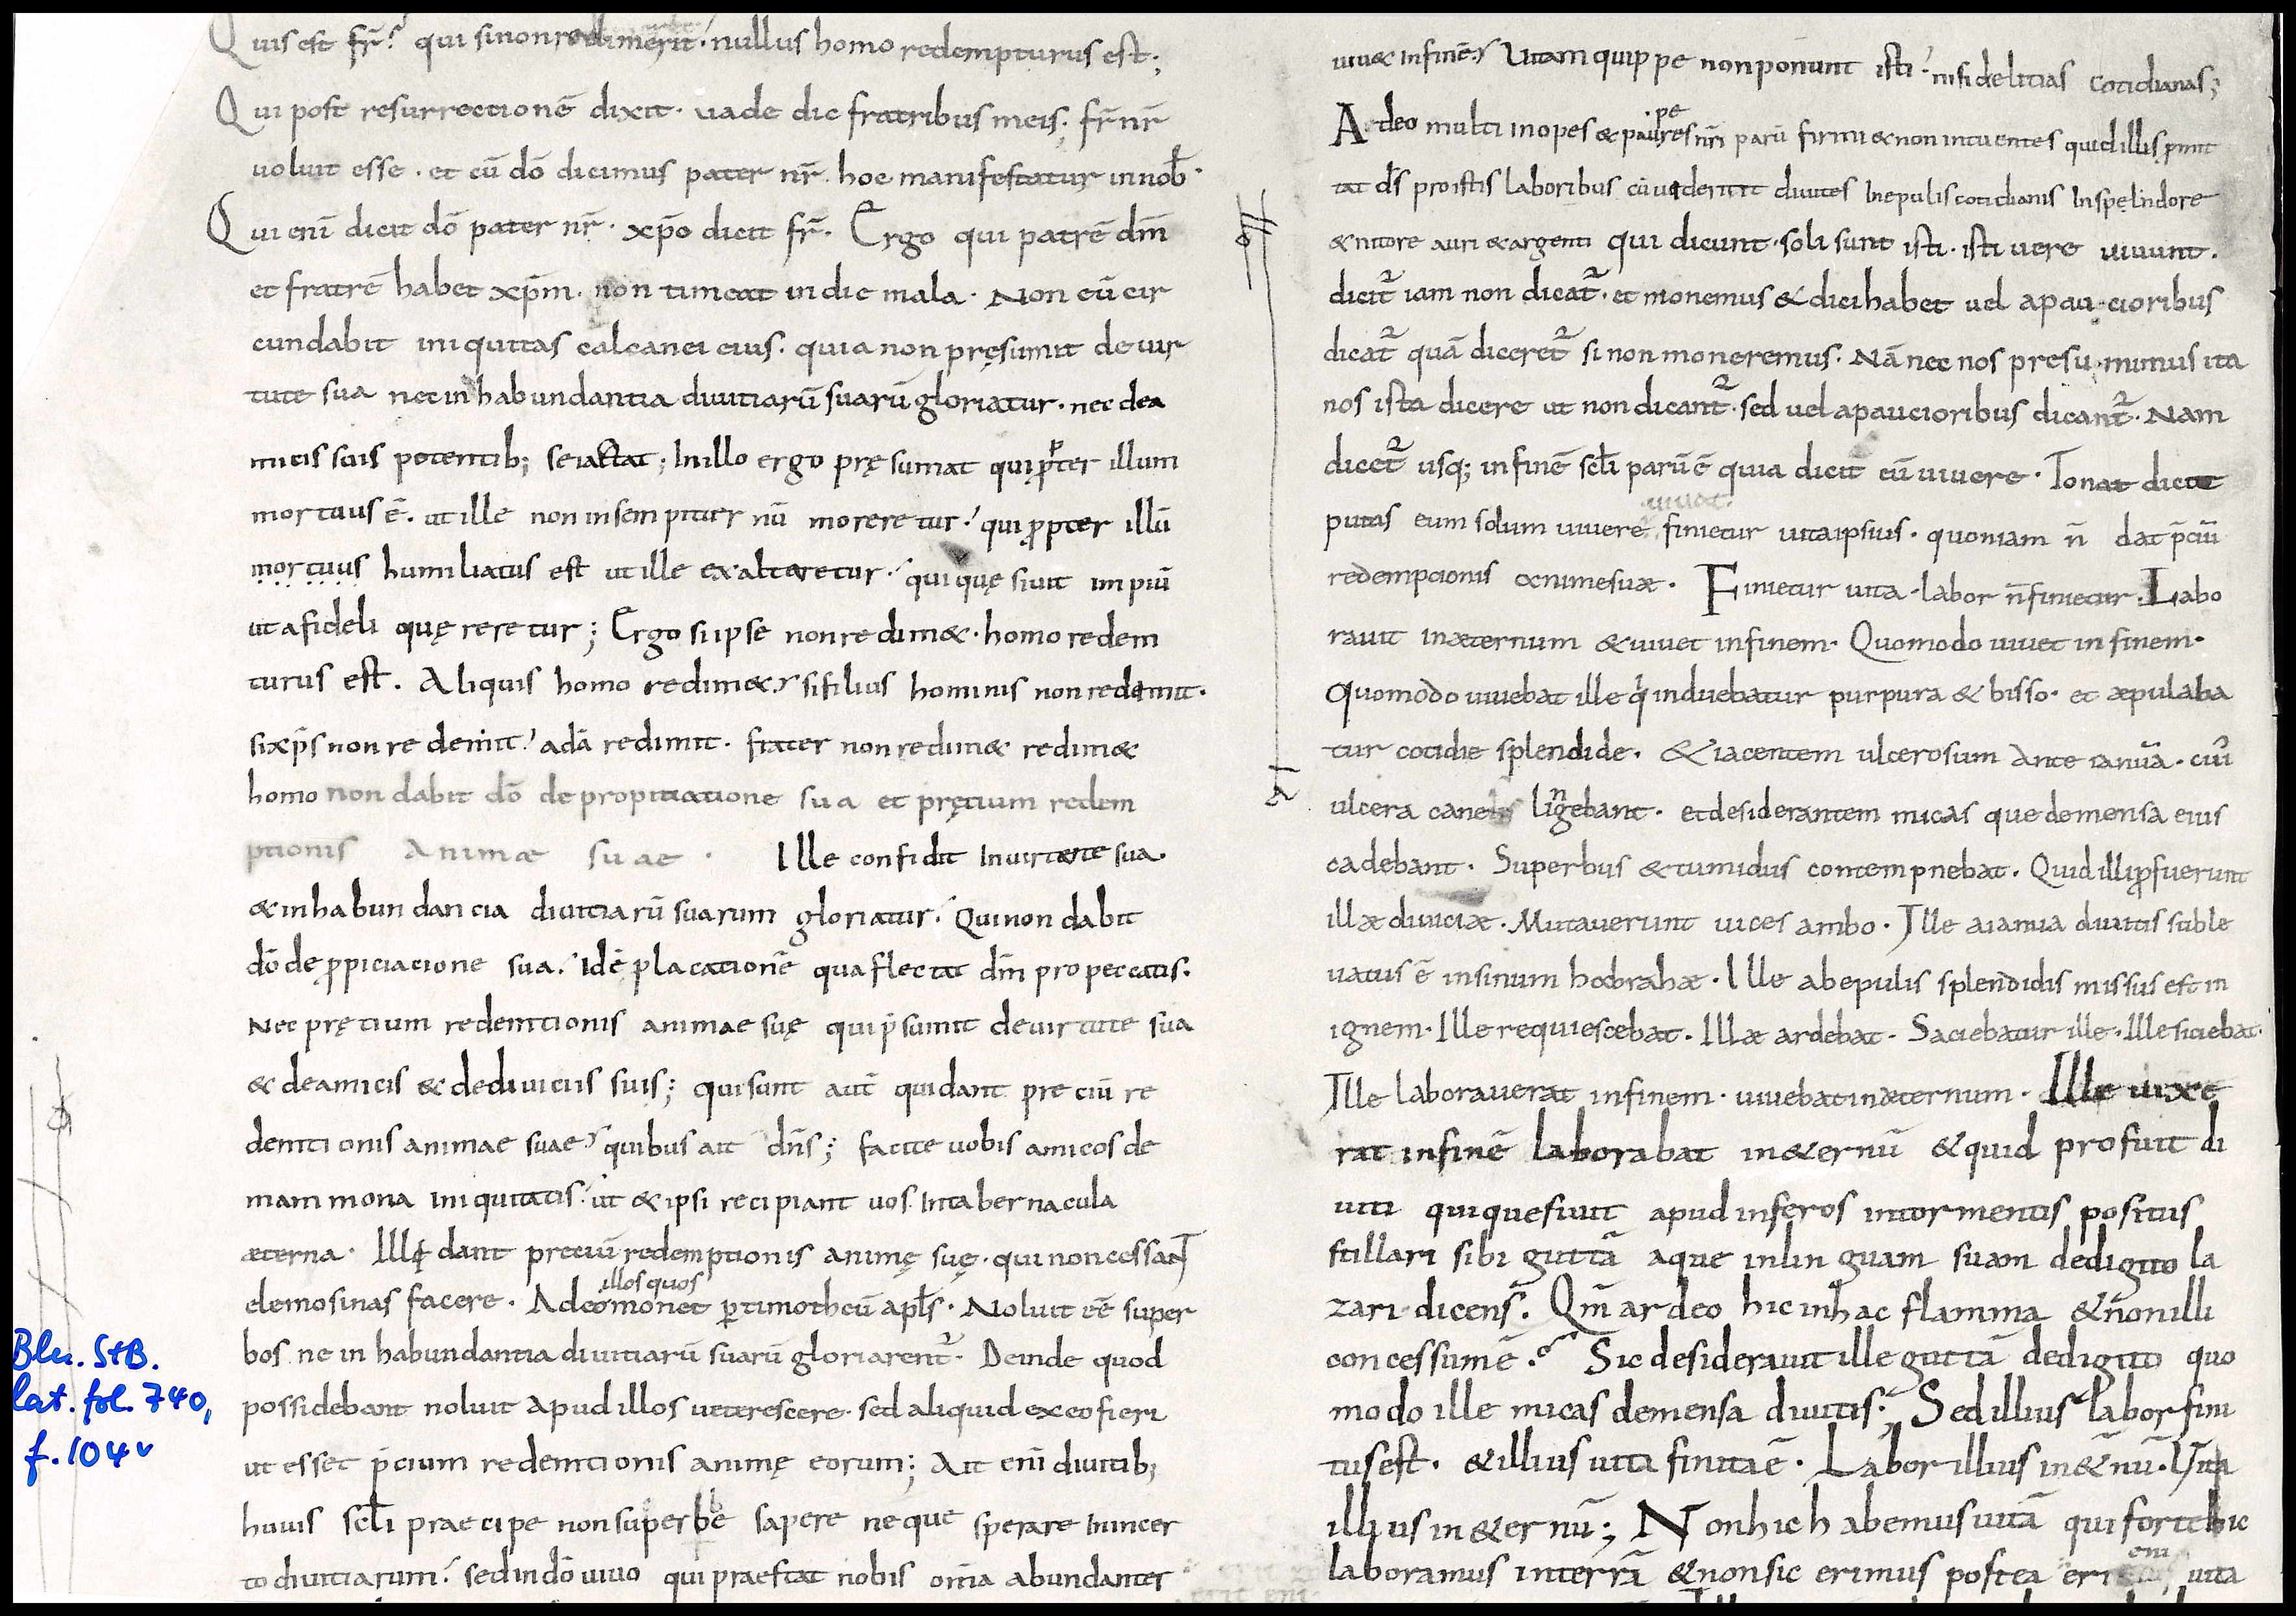 Quis est fr̄? qui si non redimerit. nullus homo redempturus est;
Qui post resurrectionē dixit. uade dic fratribus meis; fr̄ nr̄
uoluit esse. et cū dō dicimus pater nr̄. hoc manifestatur in nob̄.
Qui enī dicit dō pater nr̄. xp̄o dicit fr̄. Ergo qui patrē dm̄
et fratrē habet xp̄m. non timeat in die mala. Non eū cir
cundabit iniquitas calcanei eius. quia non pręsumit de uir
tute sua nec in habundantia diuitiarū suarū gloriatur. nec de a
micis suis potentib; se iactat; In illo ergo pręsumat qui propter illum
mortuus ē. ut ille non in sempitur nū moreretur. qui propter illū
mortuus humiliatus est ut ille exalteretur. qui quęsiuit impiū
ut a fideli quęreretur; Ergo si ipse non redim&. homo redem
turus est. Aliquis homo redim&? si filius hominis non redemit.
si xp̄s non redemit? adā redimit. frater non redim& redim&
homo non dabit dō de propitiatione sua et prętium redem
ptionis Animæ suae. Ille confidit In uirtute sua.
& in habundancia diuitiarū suarum gloriatur. Qui non dabit
dō de ꝓpiciacione sua. Idē placationē qua flectat dm̄ pro peccatis.
Nec prętium redemtionis animae suę qui p̄sumit de uirtute sua
& de amicis & de diuiciis suis; qui sunt aut̄ qui dant preciū re
demtionis animae suae? quibus ait dn̄s; facite uobis amicos de
mammona iniquitatis. ut & ipsi recipiant uos In tabernacula
æterna. Illi dant preciū redemptionis animę suę. qui non cessant
elemosinas facere. Adeo illos quos monet ꝑ timotheū apl̄s. Noluit eē super
bos ne in habundantia diuitiarū suarū gloriarent̄. Deinde quod
possidebant noluit apud illos ueterescere. sed aliquid ex eo fieri
ut esset p̄cium redemtionis animę eorum; Ait enī diuitib;
huius scl̄i praecipe non superbe sapere neque sperare In incer
to diuitiarum? sed in dō uiuo qui praestat nobis om̄a abundanter
uiu& in finē? Uitam quippe non ponunt isti. nisi delitias cotidianas;
Adeo multi inopes & pauperes nr̄i parū firmi & non intuentes quid illis promit
tat ds̄ pro istis laboribus cū uiderint diuites In epulis cotidianis In spelndore
& nitore auri & argenti qui dicunt. soli sunt isti. isti uere uiuunt.
dicit̄ iam non dicat̄. et monemus & dici habet uel a paucioribus
dicat̄ quā diceret̄ si non moneremus. Nā nec nos presumimus ita
nos ista dicere ut non dicant̄. sed uel a paucioribus dicant̄. Nam
dicet̄ usq; in finē scl̄i parū ē quia dicit eū uiuere. Tonat dicit
putas eum solum uiuere finietur uita ipsius. quoniam n̄ dat p̄ciū
redempcionis animesuæ. Finietur uita. labor n̄ finietur. Labo
rauit in æternum & uiuet in finem. Quomodo uiuet in finem.
Quomodo uiuebat ille qui induebatur purpura & bisso. et æpulaba
tur cotidie splendide. & iacentem ulcerosum Ante ianuā. cui
ulcera canes lingebant. et desiderantem micas que de mensa eius
cadebant. Superbus & tumidus contempnebat. Quid illi ꝓfuerunt
illæ diuiciæ. Mutauerunt uices ambo. Ille a ianua diuitis suble
uatus ē in sinum habrahæ. Ille ab epulis splendidis missus est in
ignem. Ille requiescebat. Illæ ardebat. Saciebatur ille. Ille siciebat.
Ille laborauerat in finem. uiuebat in æternum. Ille uixe
rat in finē laborabat in &ernū & quid profuit di
uiti qui quesiuit apud inferos in tormentis positus
stillari sibi guttā aque in linguam suam de digito la
zari dicens. Qm̄ ardeo hic in hac flamma & non illi
concessum ē. Sic desiderauit ille guttā de digito quo
modo ille micas de mensa diuitis; Sed illius labor fini
tus est. & illius uita finita ē. Labor illius in &nū. Uita
illius in &ernū; Non hic habemus uitā qui forte hic
laboramus in terrā & non sic erimus postea eri uita
Bln. StB.
lat. fol. 740,
f. 104v